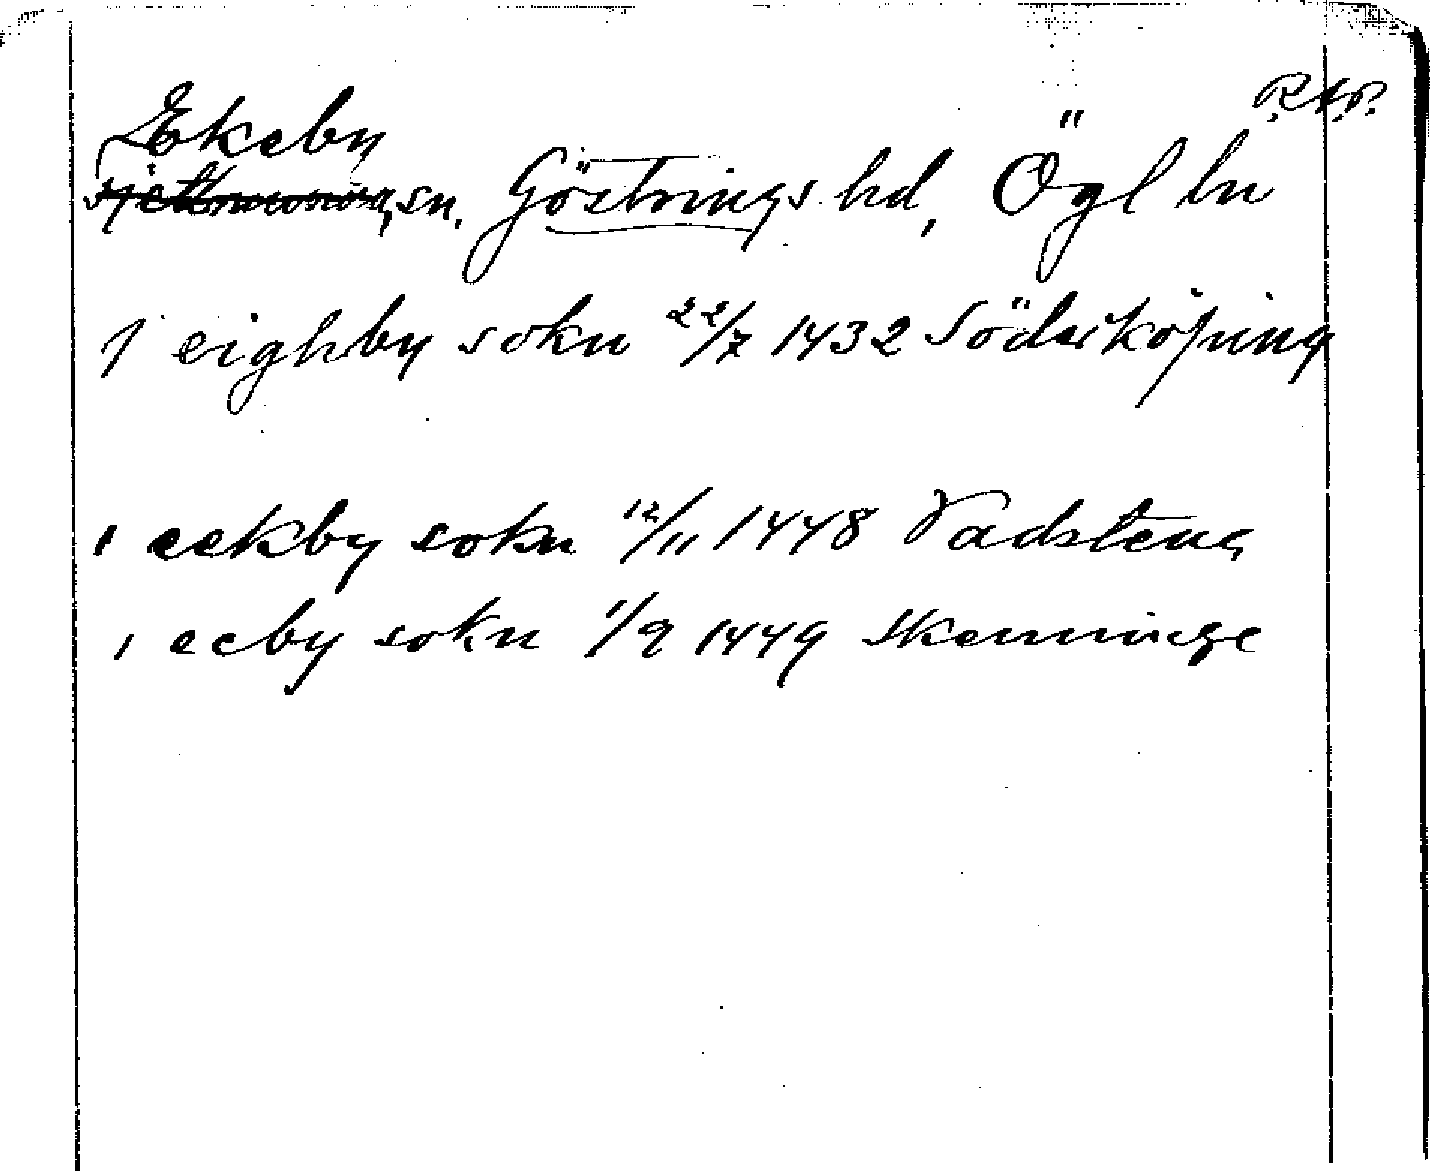 R.A.P.
Ekeby
sn. Göstrings hd, Ögl ln
J eighby sokn 22/7 1432 Söderköping
i eekby sokn 12/11 1448 Vadstena
i ecby sokn 1/9 1449 Skenninge